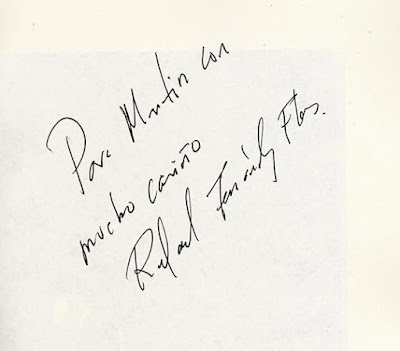 Para Martin con
mucho cariño
Rafael Fernández Flores.